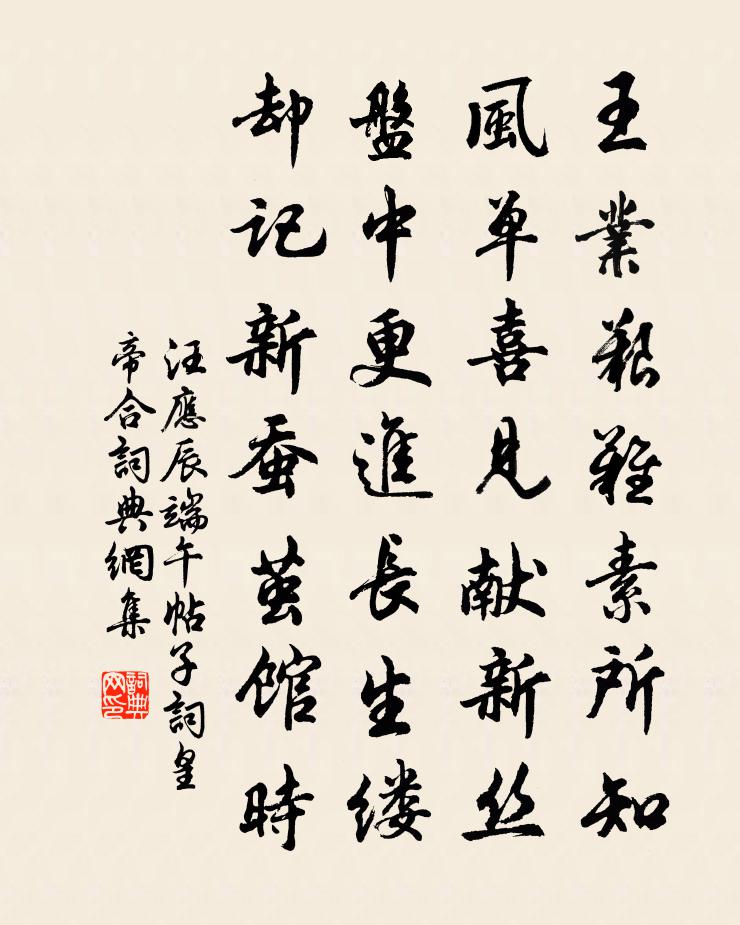 王業艱難素所知
風单喜見献新丝
盤中更進長生缕
却記新蚕茧馆時
汪應辰端午帖子詞皇
帝合詞典網集
詞典
网印